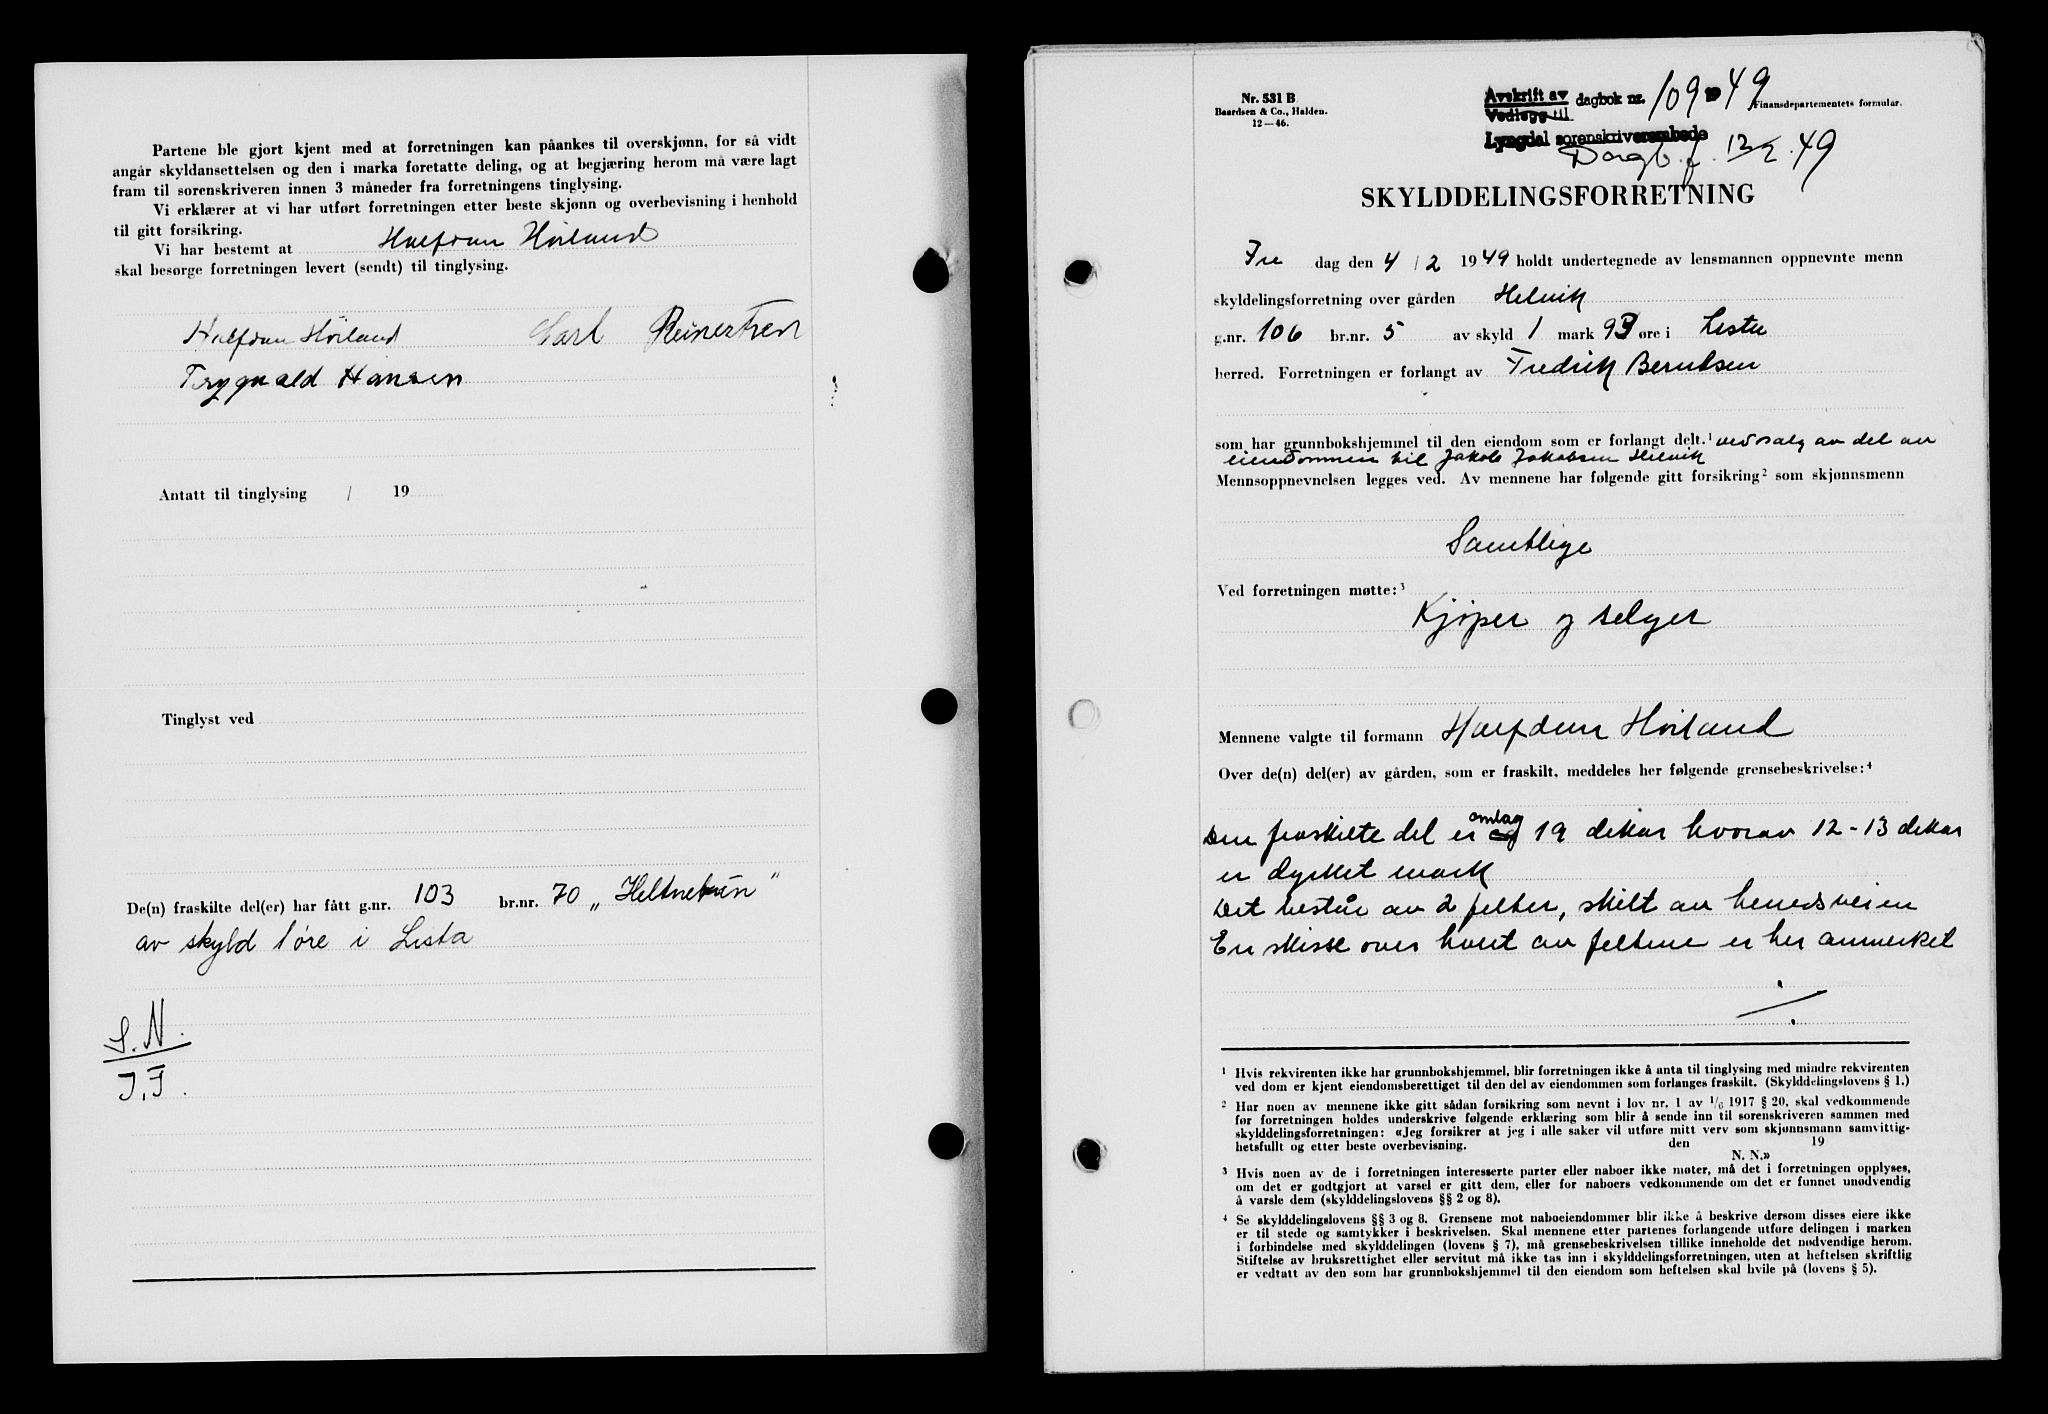 Partene ble gjort kjent med at forretningen kan påankes til overskjønn, for så vidt
angår skyldansettelsen og den i marka foretatte deling, og at begjæring herom må være lagt
fram til sorenskriveren innen 3 måneder fra forretningens tinglysing.
Vi erklærer at vi har utført forretningen etter beste skjønn og overbevisning i henhold
til gitt forsikring.
Vi har bestemt at Halfdan Høiland
skal besørge forretningen levert (sendt) til tinglysing.
Halfdan Høiland Carl Reinertsen
Trygvald Hansen
Antatt til tinglysing / 19
Tinglyst ved
De(n) fraskilte del(er) har fått g.nr. 103 br.nr. 70 „Heltnetun"
av skyld 1 øre i Lista
S.N.
J.F.
Nr. 531 B
Baardsen & Co., Halden.
12—46.
Avskrift av
Vedlegg til
dagbok nr. 109 1949
Finansdepartementets formular.
Lyngdal sorenskriverembede
Dagb.f. 12/2.49
SKYLDDELINGSFORRETNING
Fre dag den 4 / 2 1949 holdt undertegnede av lensmannen oppnevnte menn
skyldelingsforretning over gården Helvik
g.nr. 106 br.nr. 5 av skyld 1 mark 93 øre i Lista
herred. Forretningen er forlangt av Fredrik Berntsen
som har grunnbokshjemmel til den eiendom som er forlangt delt.¹ ved salg av del av
eiendommen til Jakob Jakobsen Helvik
Mennsoppnevnelsen legges ved. Av mennene har følgende gitt forsikring² som skjønnsmenn
Samtlige
Ved forretningen møtte:³
Kjøper og selger
Mennene valgte til formann Halfdan Høiland
Over de(n) del(er) av gården, som er fraskilt, meddeles her følgende grensebeskrivelse:⁴
Den fraskilte del er omlag 19 dekar hvorav 12-13 dekar
er dyrket mark
Det består av 2 felter, skilt av herredsveien
En skisse over hvert av feltene er her anmerket
./.
¹ Hvis rekvirenten ikke har grunnbokshjemmel, blir forretningen ikke å anta til tinglysing med mindre rekvirenten
ved dom er kjent eiendomsberettiget til den del av eiendommen som forlanges fraskilt. (Skylddelingslovens § 1.)
² Har noen av mennene ikke gitt sådan forsikring som nevnt i lov nr. 1 av 1/6 1917 § 20, skal vedkommende
før forretningen holdes underskrive følgende erklæring som blir å sende inn til sorenskriveren sammen med
skylddelingsforretningen: «Jeg forsikrer at jeg i alle saker vil utføre mitt verv som skjønnsmann samvittig-
hetsfullt og etter beste overbevisning. den 19
N. N.»
³ Hvis noen av de i forretningen interesserte parter eller naboer ikke møter, må det i forretningen opplyses,
om det er godtgjort at varsel er gitt dem, eller for naboers vedkommende om det er funnet unødvendig
å varsle dem (skylddelingslovens §§ 2 og 8).
⁴ Se skylddelingslovens §§ 3 og 8. Grensene mot naboeiendommer blir ikke å beskrive dersom disses eiere ikke
er til stede og samtykker i beskrivelsen. Skal mennene etter partenes forlangende utføre delingen i marken
i forbindelse med skylddelingen (lovens § 7), må grensebeskrivelsen tillike inneholde det nødvendige herom.
Stiftelse av bruksrettighet eller servitut må ikke tas inn i skylddelingsforretningen, uten at heftelsen skriftlig
er vedtatt av den som har grunnbokshjemmel til den eiendom som heftelsen skal hvile på (lovens § 5).